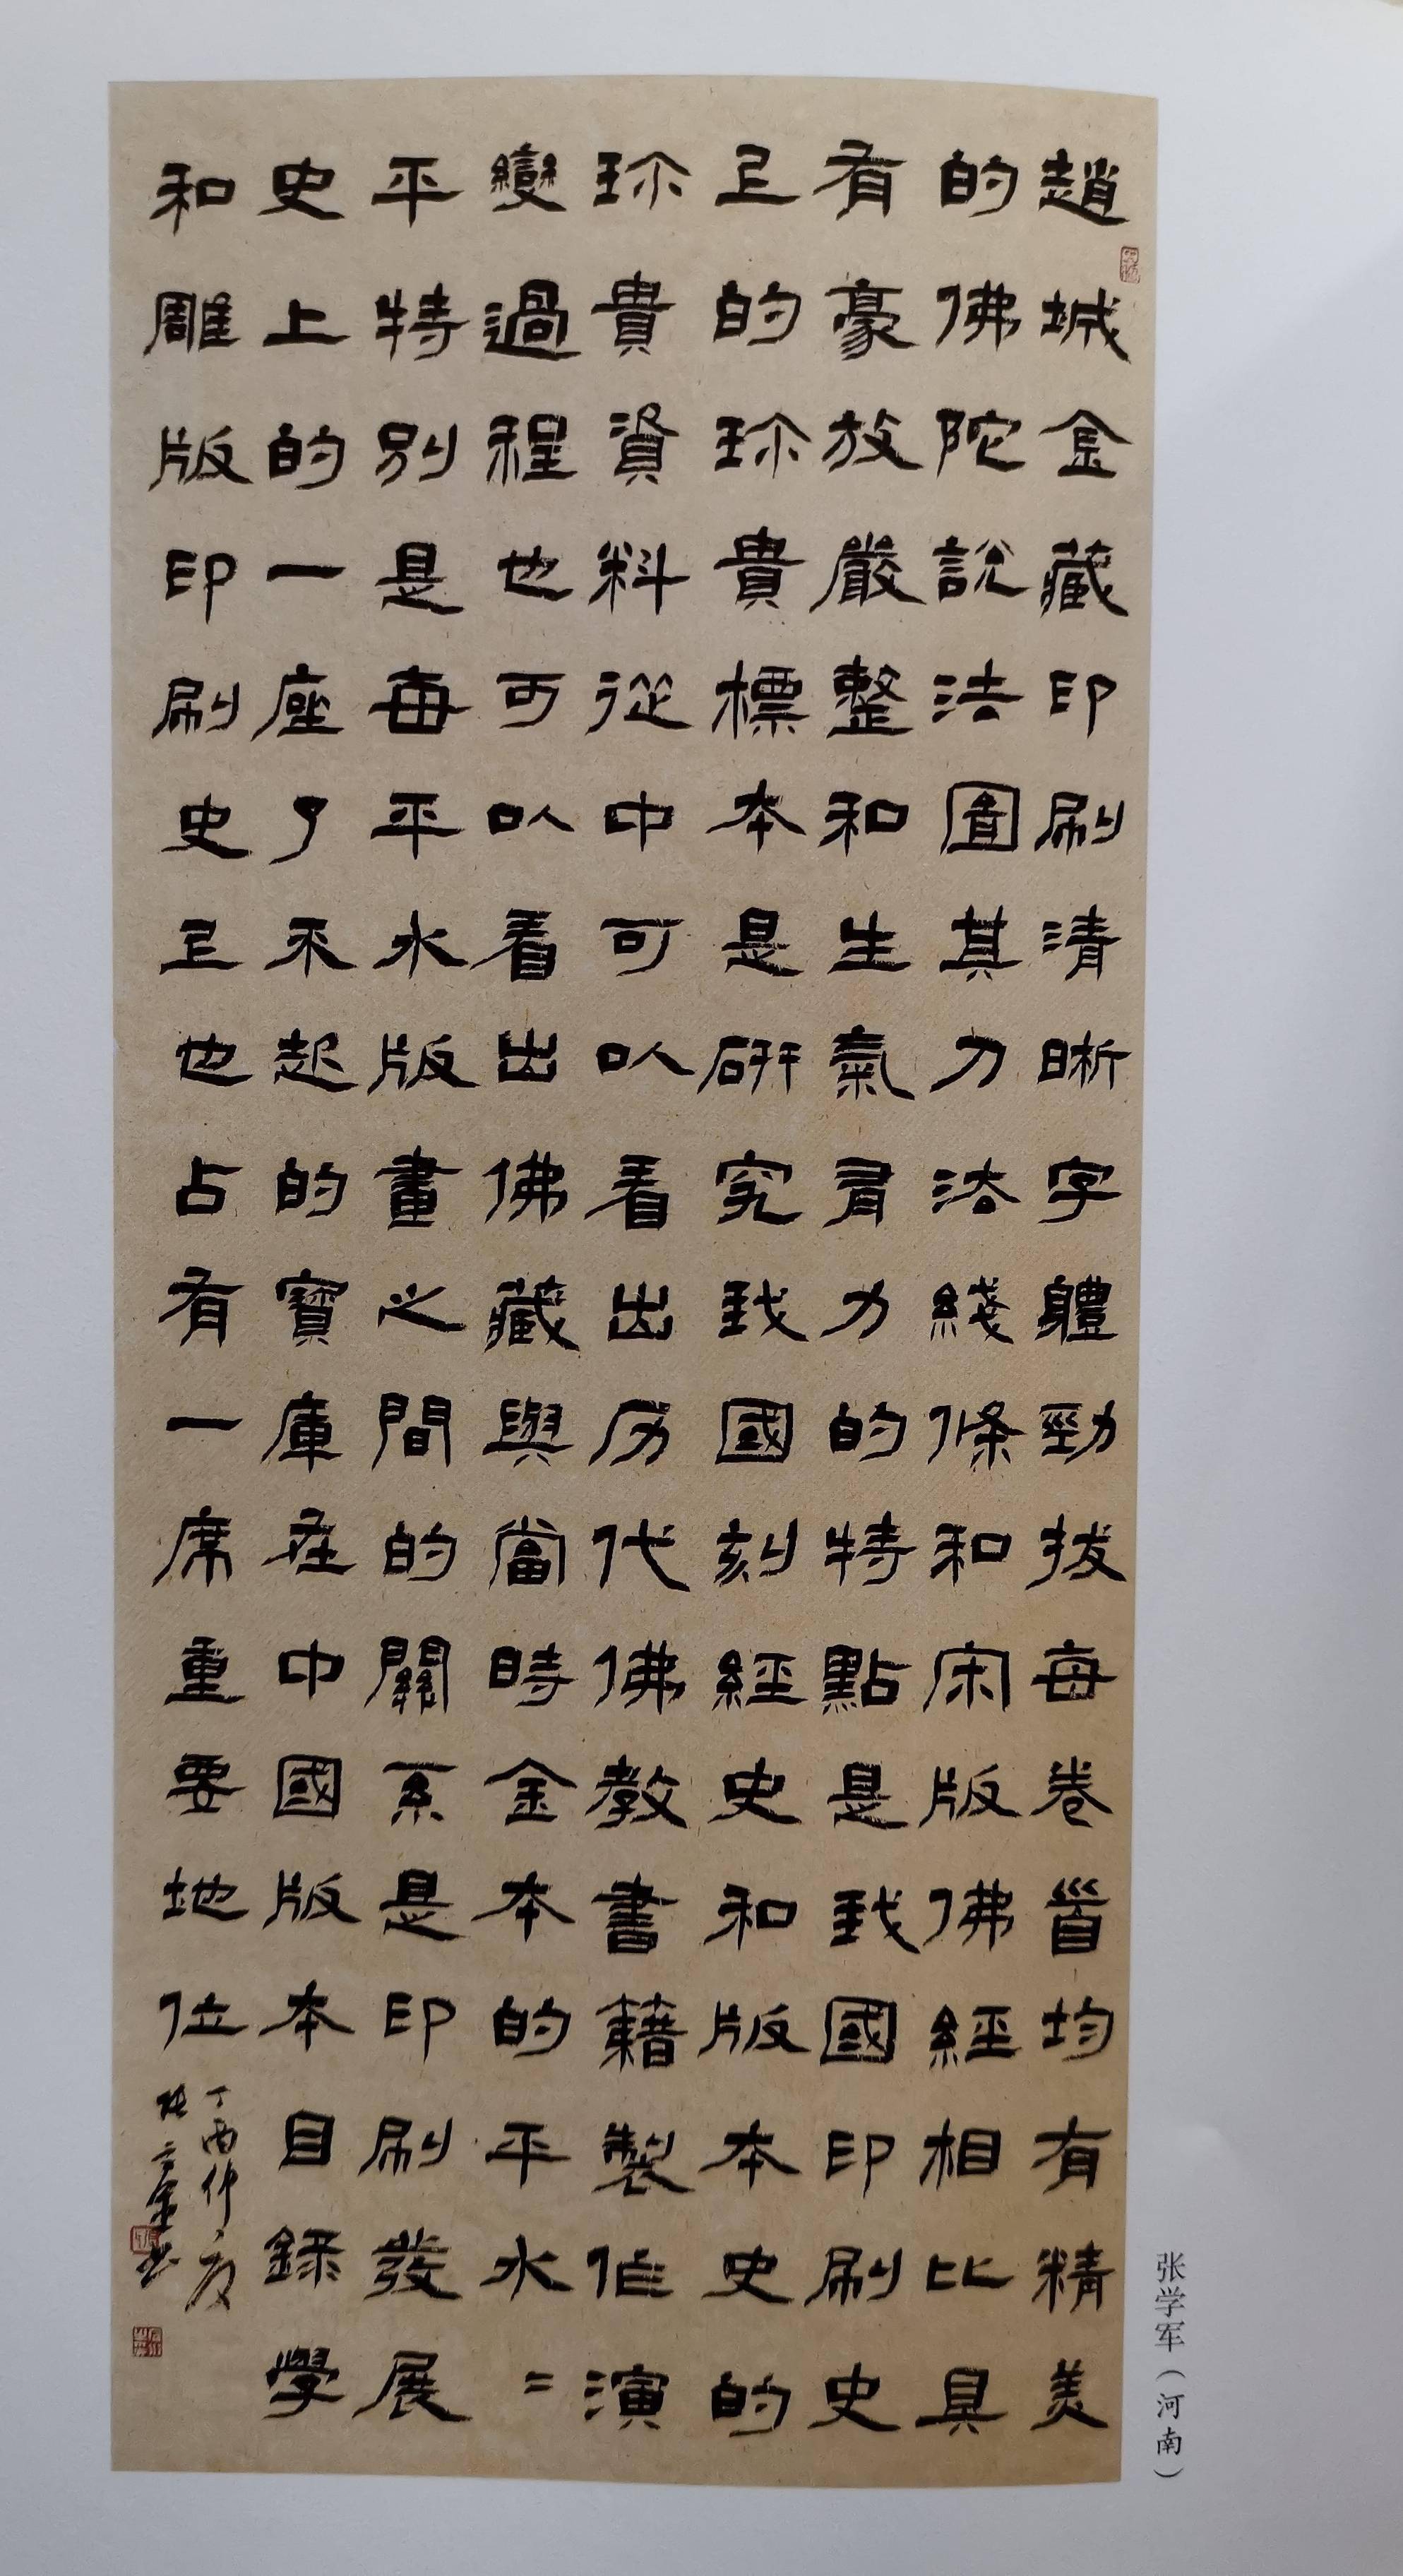 趙城金藏印刷清晰字體勁拔每卷首均有精美
的佛陀說法圖其刀法綫條和宋版佛經相比具
有豪放嚴整和生氣有力的特點是我國印刷史
上的珎貴標本是研究我國刻經史和版本史的
珎貴資料從中可以看出历代佛教書籍製作演
變過程也可以看出佛藏與當時金本的平水=
平特別是每平水版畫之間的關系是印刷發展
史上的一座了不起的寶庫在中國版本目録學
和雕版印刷史上也占有一席重要地位
丁酉仲夏
张学军（河南）